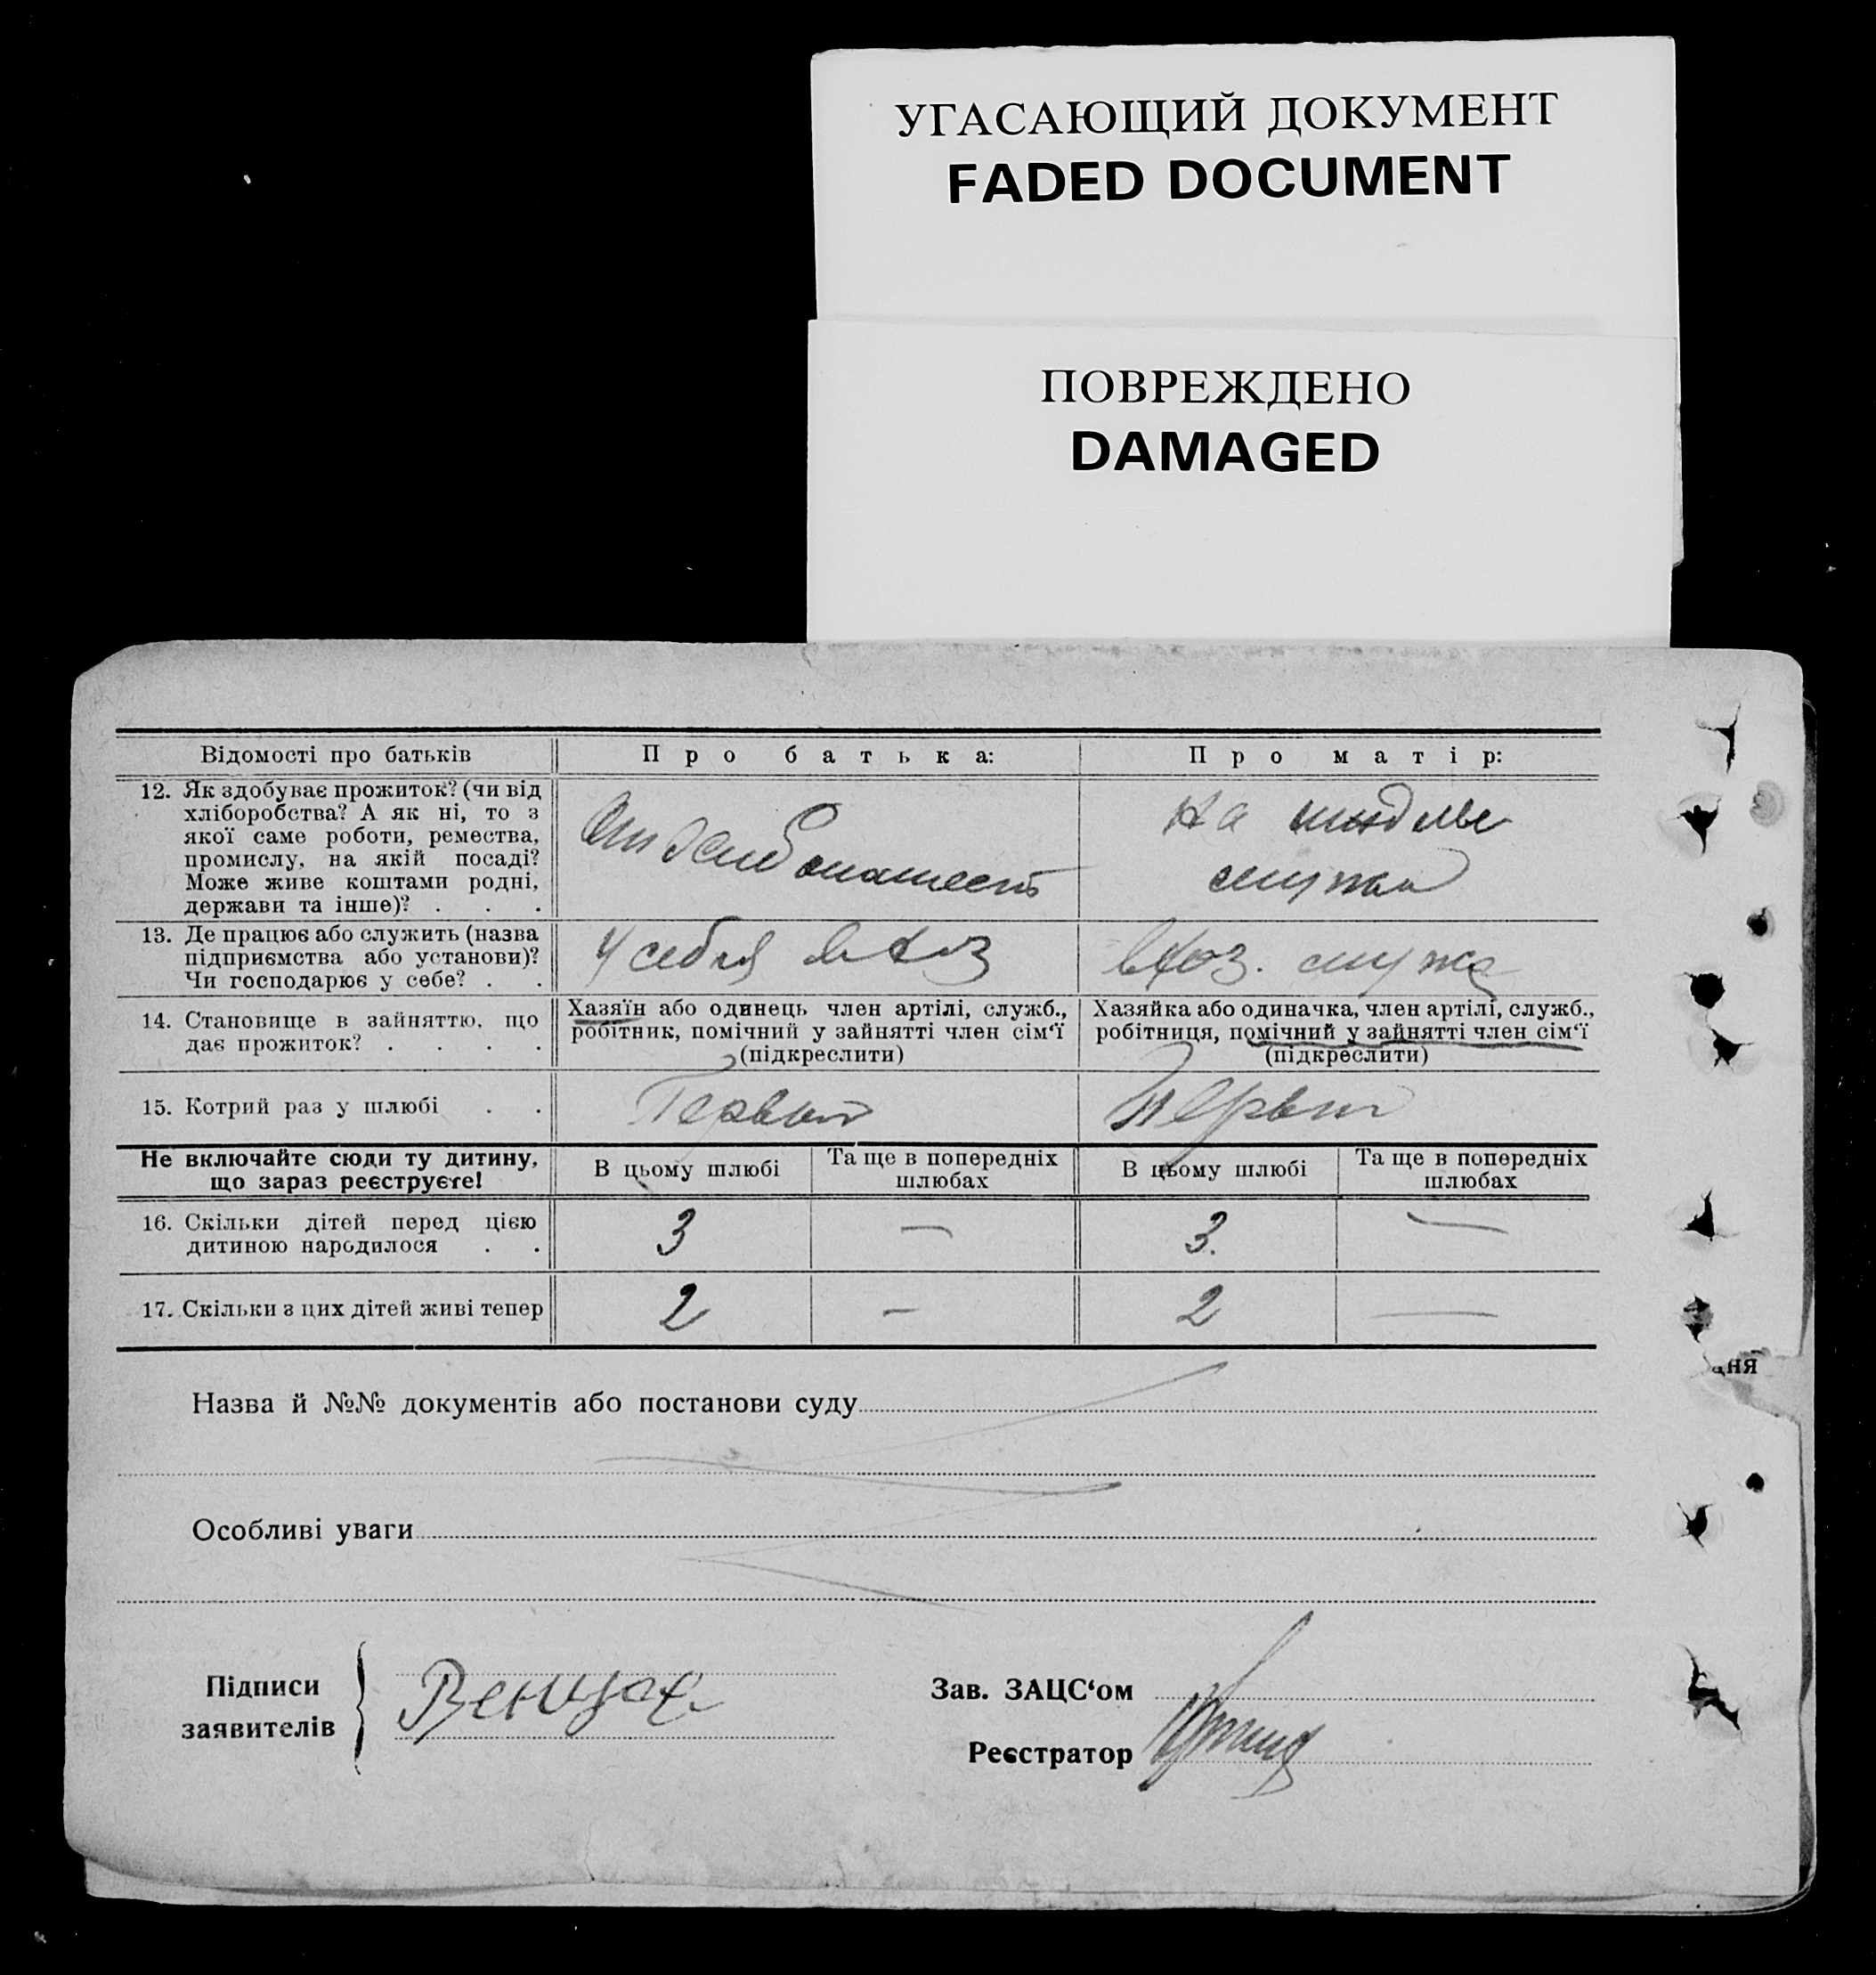 УГАСАЮЩИЙ ДОКУМЕНТ
FADED DOCUMENT
ПОВРЕЖДЕНО
DAMAGED
Відомості про батьків
Про батька:
Про матір:
12. Як здобуває прожиток? (чи від
хліборобства? А як ні, то з
якої саме роботи, ремества,
промислу, на якій посаді?
Може живе коштами родні,
держави та інше)? . . .
От
На
мужа
13. Де працює або служить (назва
підприємства або установи)?
Чи господарює у себе? . .
У себя в хоз
в хоз. мужа
14. Становище в зайняттю, що
дає прожиток? . . . .
Хазяїн або одинець член артілі, служб.,
робітник, помічний у зайнятті член сім‘ї
(підкреслити)
Хазяйка або одиначка, член артілі, служб.,
робітниця, помічний у зайнятті член сім‘ї
(підкреслити)
15. Котрий раз у шлюбі . .
Первый
Первый
Не включайте сюди ту дитину,
що зараз реєструєте!
В цьому шлюбі
Та ще в попередніх
шлюбах
В цьому шлюбі
Та ще в попередніх
шлюбах
16. Скільки дітей перед цією
дитиною народилося . .
3 — 3. —
17. Скільки з цих дітей живі тепер
2 — 2 —
дня
Назва й №№ документів або постанови суду
Особливі уваги
Підписи
заявителів
Зав. ЗАЦС‘ом
Реєстратор